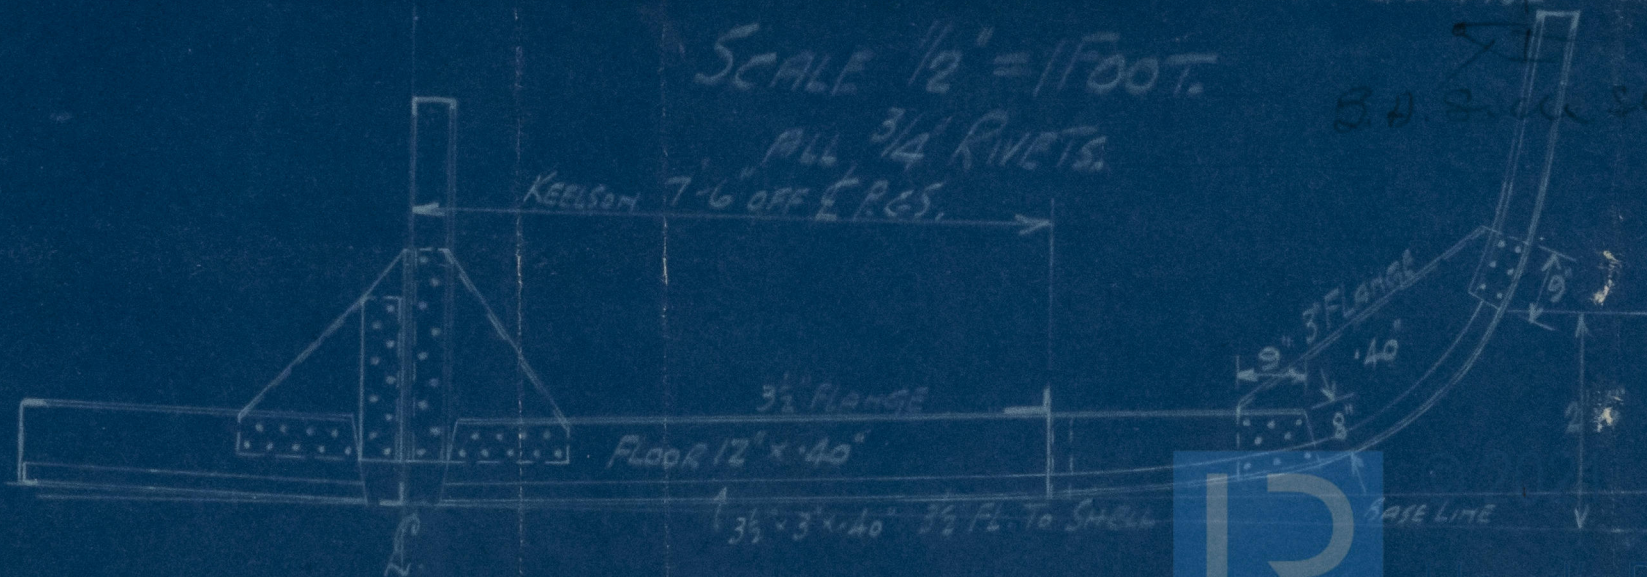 SCALE 1/2" = 1 FOOT.
ALL 3/4" RIVETS.
KEELSON 7'-6" OFF ℄ P.&S.
3" FLANGE
9"
9"
.40"
8"
3½" FLANGE
FLOOR 12" x .40"
3½" x 3" x .40" 3½ FL. TO SHELL
BASE LINE